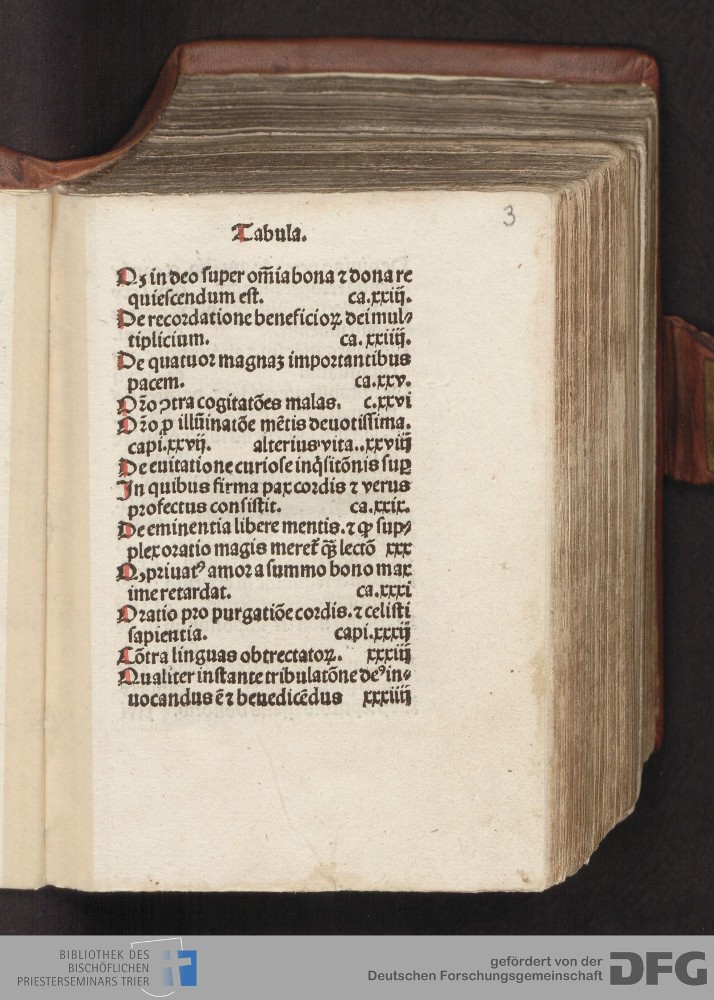 3
Tabula.
Qꝫ in deo super om̄ia bona ⁊ dona re
quiescendum est. ca.xxiij.
De recordatione beneficioꝝ dei mul⸗
tiplicium. ca. xxiiij.
De quatuor magnaꝫ importantibus
pacem. ca.xxv.
Or̄o ꝯtra cogitatōes malas. c.xxvi
Or̄o ꝓ illūinatōe mētis deuotissima.
capi.xxvij. alterius vita..xxviij
De euitatione curiose inq̇sitōnis suꝑ
In quibus firma pax cordis ⁊ verus
profectus consistit. ca.xxix.
De eminentia libere mentis.⁊ ꝙ sup⸗
plex oratio magis meret᷑ qꝫ̄ lectō xxx
Qꝫ priuatꝰ amor a summo bono max
ime retardat. ca.xxxi
Oratio pro purgatiōe cordis.⁊ celisti
sapientia. capi.xxxij
Cōtra linguas obtrectatoꝝ. xxxiij
Qualiter instante tribulatōne deꝰ in⸗
uocandus ē ⁊ benedicēdus xxxiiij
BIBLIOTHEK DES
BISCHÖFLICHEN
PRIESTERSEMINARS TRIER
gefördert von der
Deutschen Forschungsgemeinschaft DFG